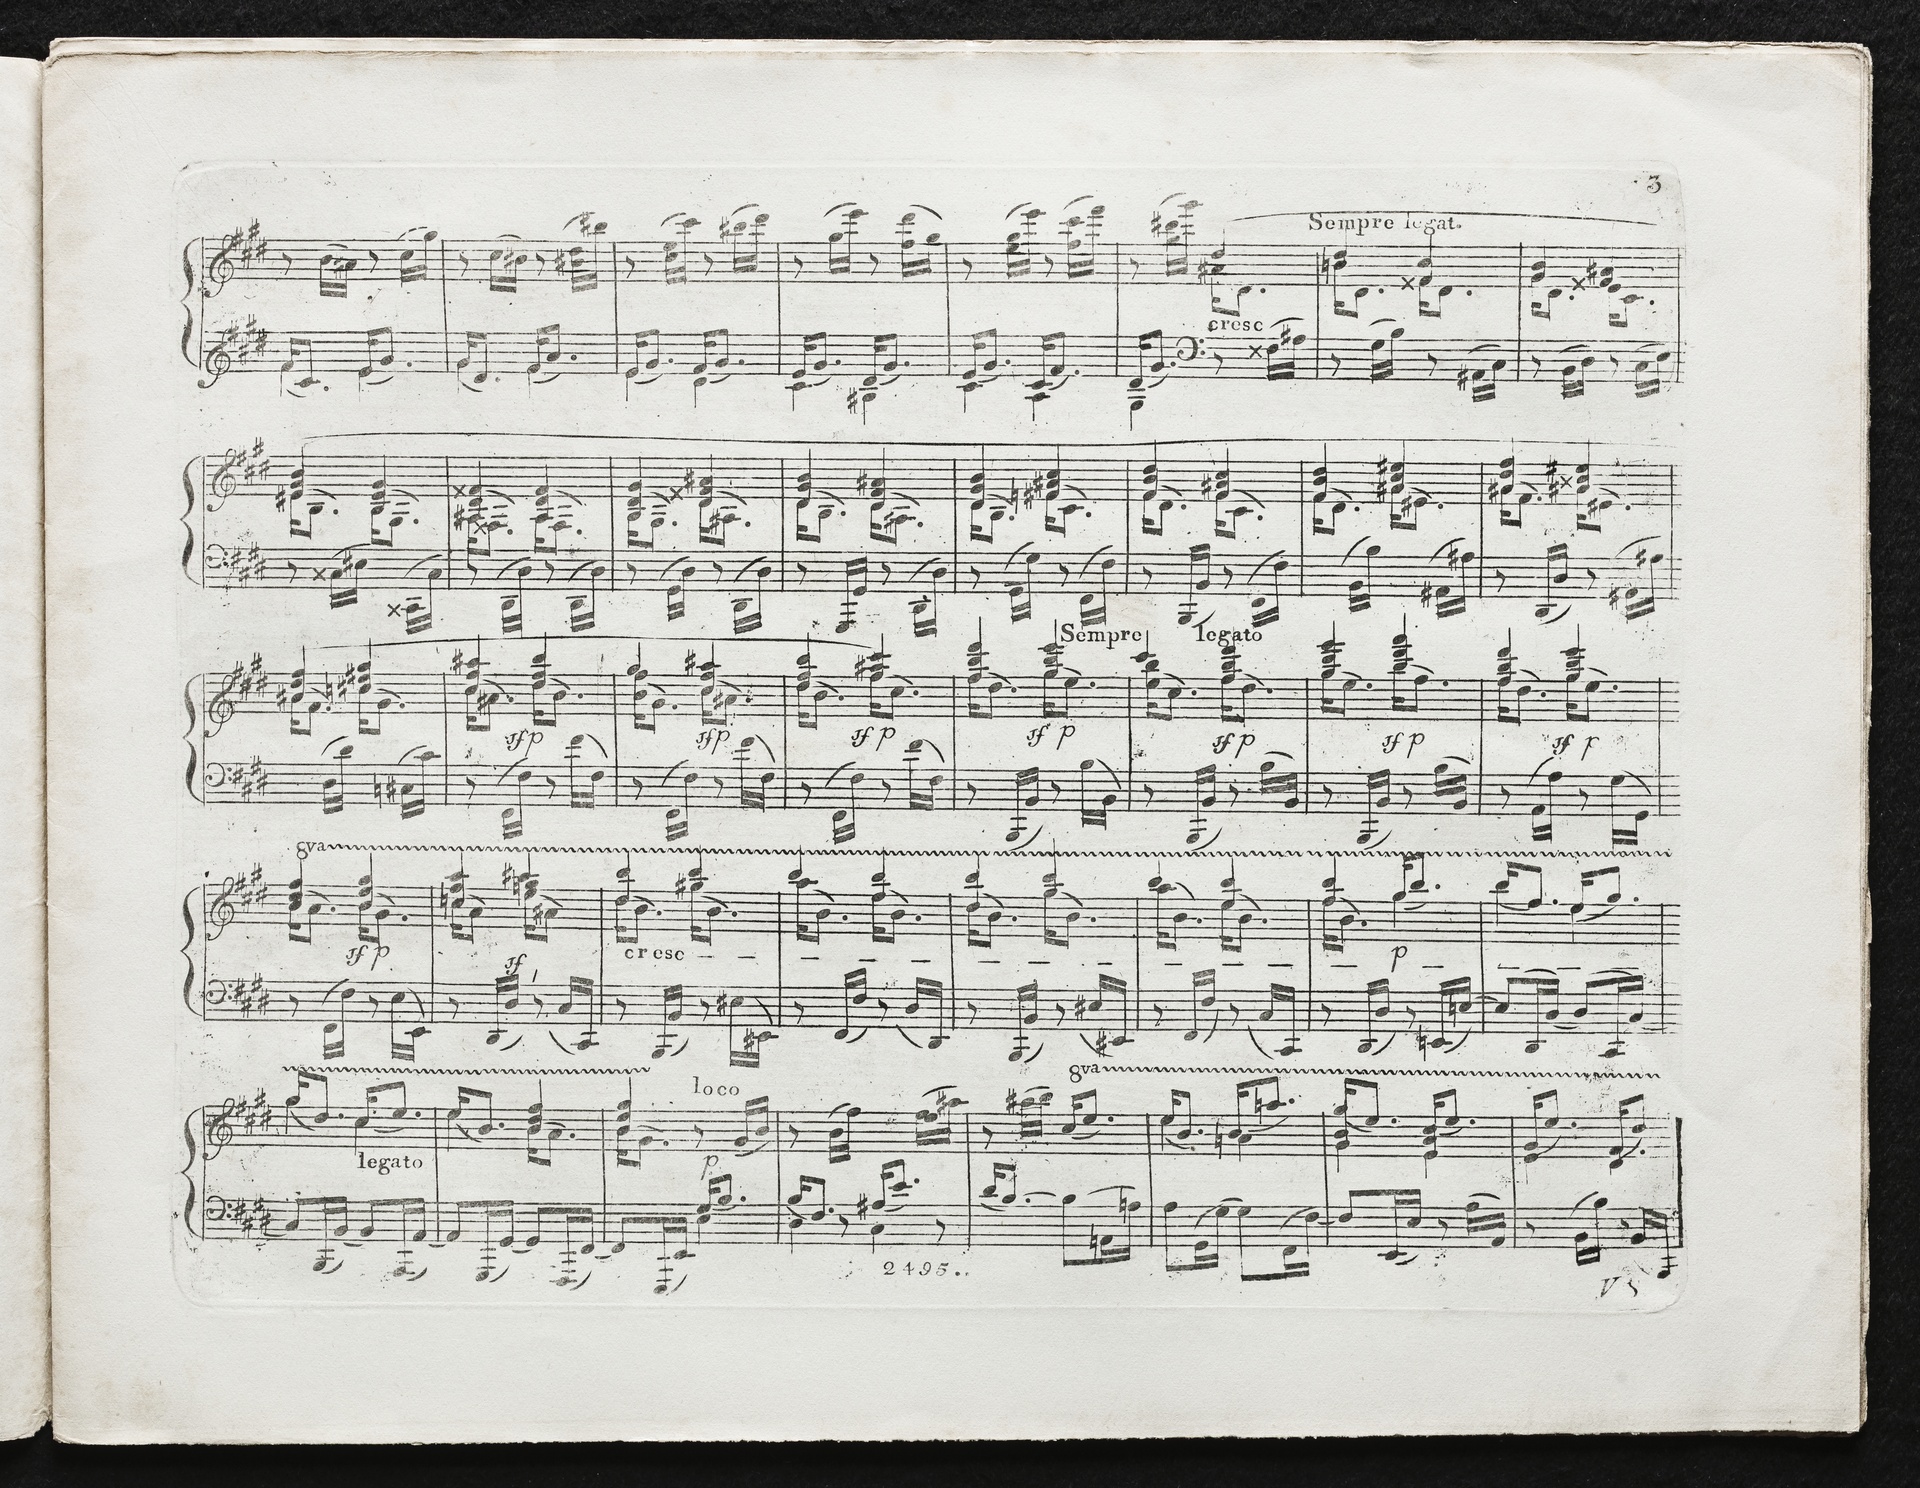 3
Sempre legat.
cresc
Sempre legato
sfp sfp sf p sf p sf p sf p sf p
8va
sf p sf cresc p
loco
8va
legato p
2495.
VS